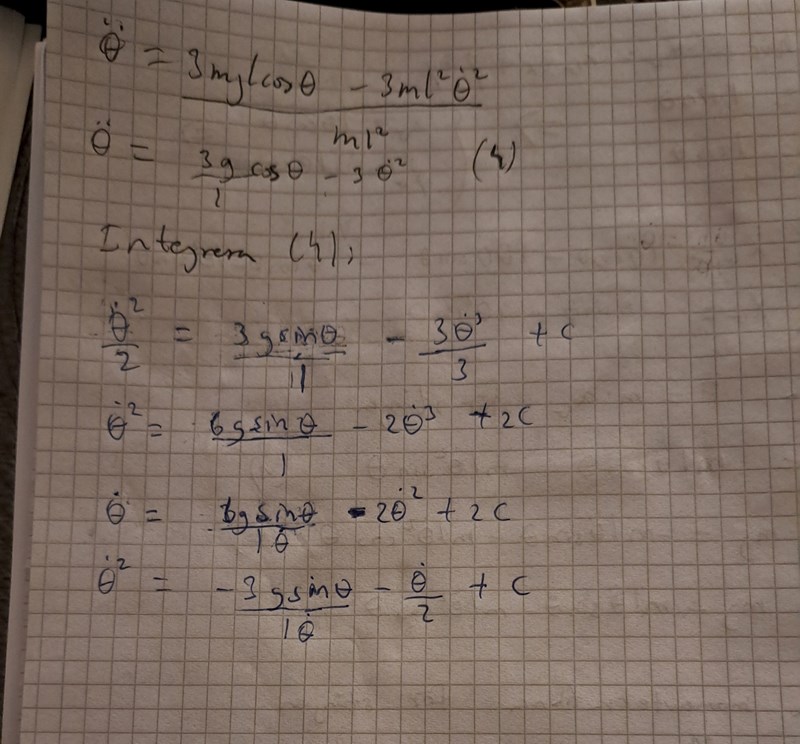 θ̈ = (3mglcosθ - 3ml²θ̇²) / ml²
θ̈ = 3g/l cosθ - 3θ̇² (4)
Integrem (4);
θ̇²/2 = 3gsinθ/l - 3θ̇³/3 + C
θ̇² = 6gsinθ/l - 2θ̇³ + 2C
θ̇ = 6gsinθ/lθ̇ - 2θ̇² + 2C
θ̇² = -3gsinθ/lθ̇ - θ̇/2 + C